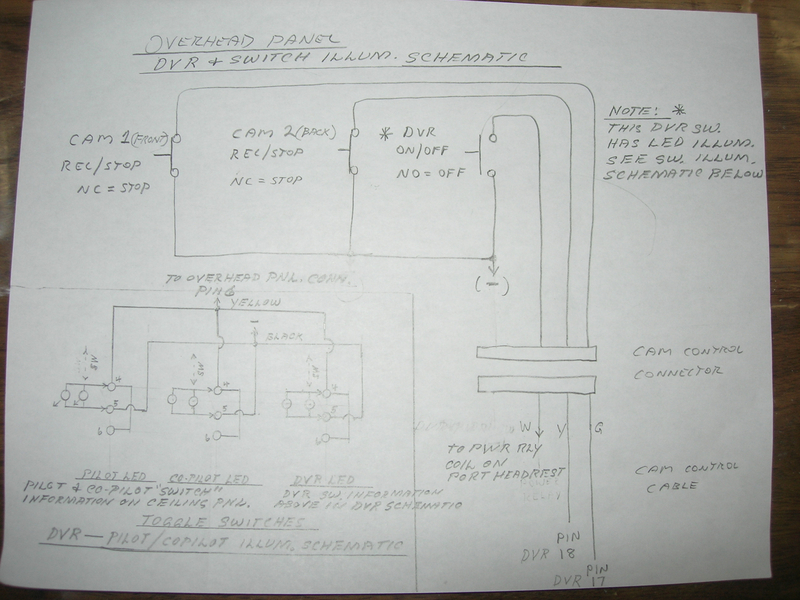 OVERHEAD PANEL
DVR & SWITCH ILLUM. SCHEMATIC
CAM 1 (FRONT)
REC/STOP
NC = STOP
CAM 2 (BACK)
REC/STOP
NC = STOP
* DVR
ON/OFF
NO = OFF
NOTE: *
THIS DVR SW.
HAS LED ILLUM.
SEE SW. ILLUM.
SCHEMATIC BELOW
(-)
TO OVERHEAD PNL. CONN.
PIN 6
YELLOW
-
BLACK
SW
4
5
6
SW
4
5
6
SW
4
5
6
PILOT LED
CO-PILOT LED
DVR LED
PILOT & CO-PILOT "SWITCH"
INFORMATION ON CEILING PNL.
DVR SW. INFORMATION
ABOVE IN DVR SCHEMATIC
TOGGLE SWITCHES
DVR — PILOT/COPILOT ILLUM. SCHEMATIC
CAM CONTROL
CONNECTOR
W
Y
G
TO PWR RLY
COIL ON
PORT HEADREST
CAM CONTROL
CABLE
PIN
DVR 18
PIN
DVR 17